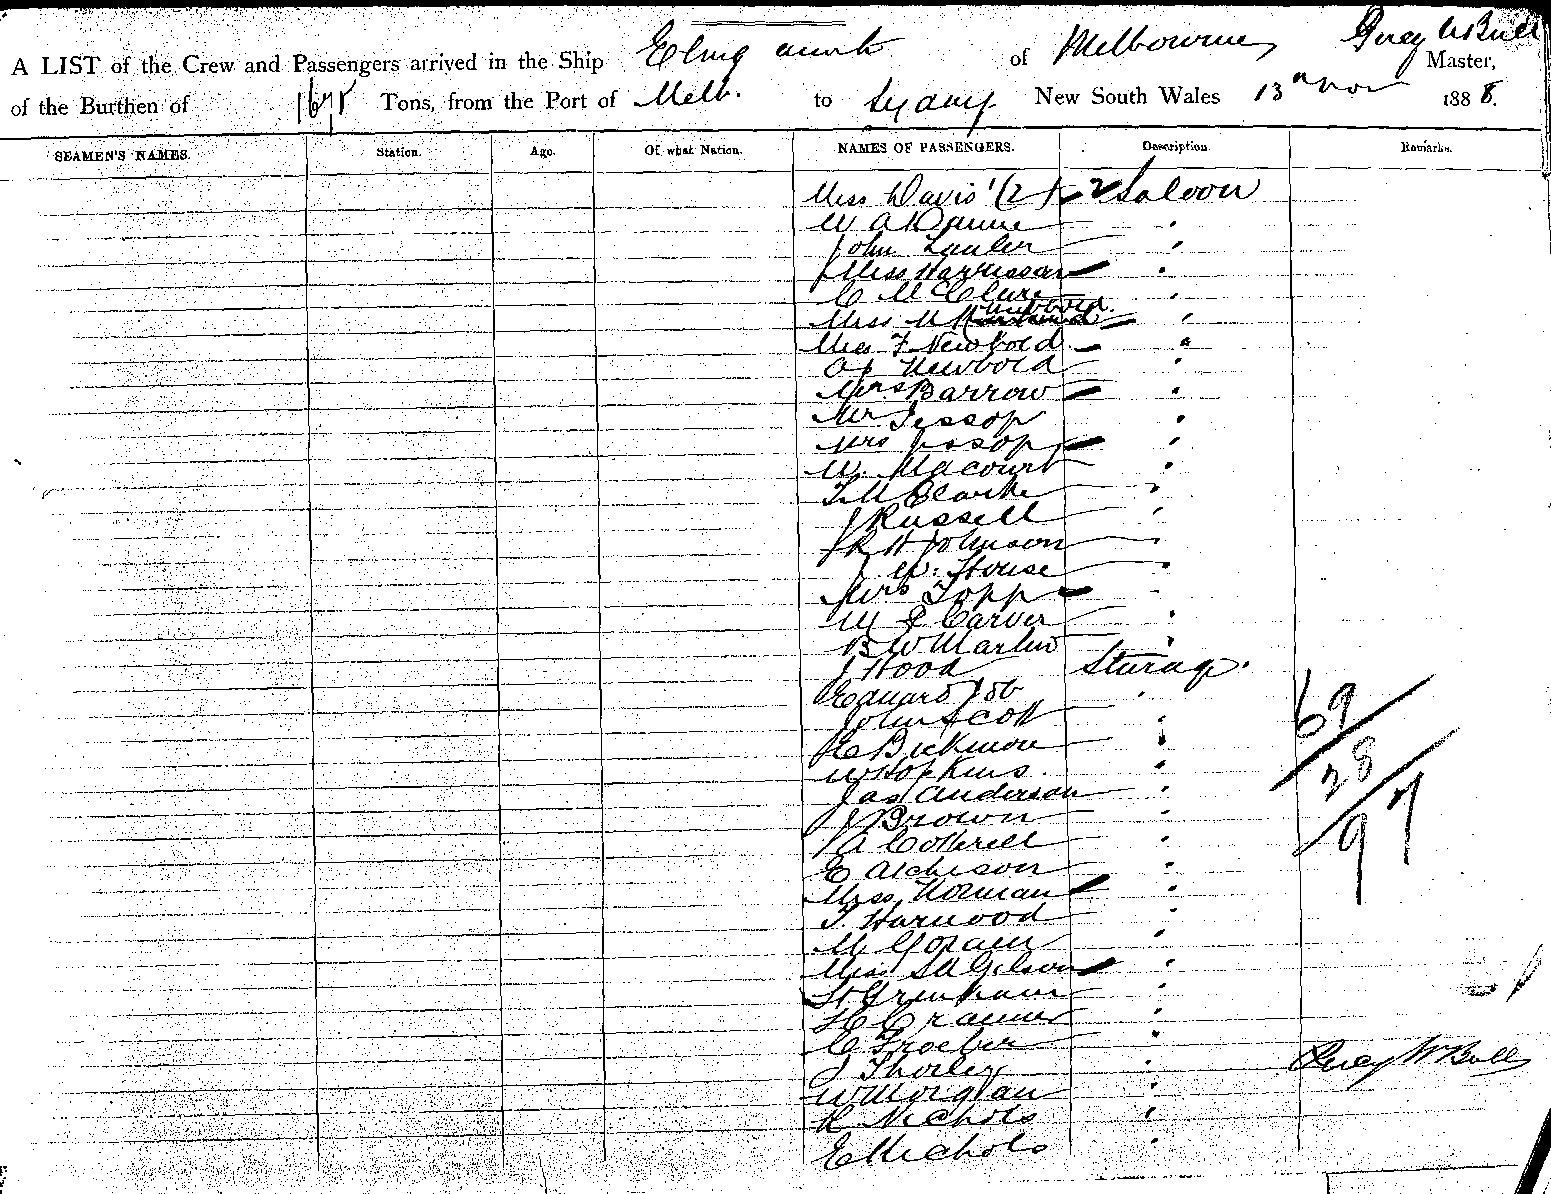 A LIST of the Crew and Passengers arrived in the Ship of Melbourne, Percy W Bull Master,
of the Burthen of Tons, from the Port of Melb. to Sydney New South Wales 13th Nov 1888.
SEAMEN'S NAMES. Station. Age. Of what Nation. NAMES OF PASSENGERS. Description. Remarks.
Miss Davis' (2) 2 Saloon
W A "
John Lawler "
Miss Harrisson "
C McClure "
Miss M Newbold "
Miss F Newbold "
A J Newbold "
Mrs Barrow "
Mr Jessop "
Mrs Jessop "
W. Macourt "
T M Clarke "
J Russell "
J R H Johnson "
J W. House "
Mrs Topp "
W E Carver "
B W Martin "
J Hood Sturage.
Edward Job "
John Scott "
H Bickmore "
W Hopkins "
Jas Anderson "
J Brown "
A Cotterell "
E Atcheson "
Miss Norman "
T. Harwood "
M "
Miss S M Gilson "
H Grenham "
H Cranmer "
C Froeber "
J Thorley "
W Morgan "
R Nichols "
E Nichols "
69
28
97
Percy W Bull